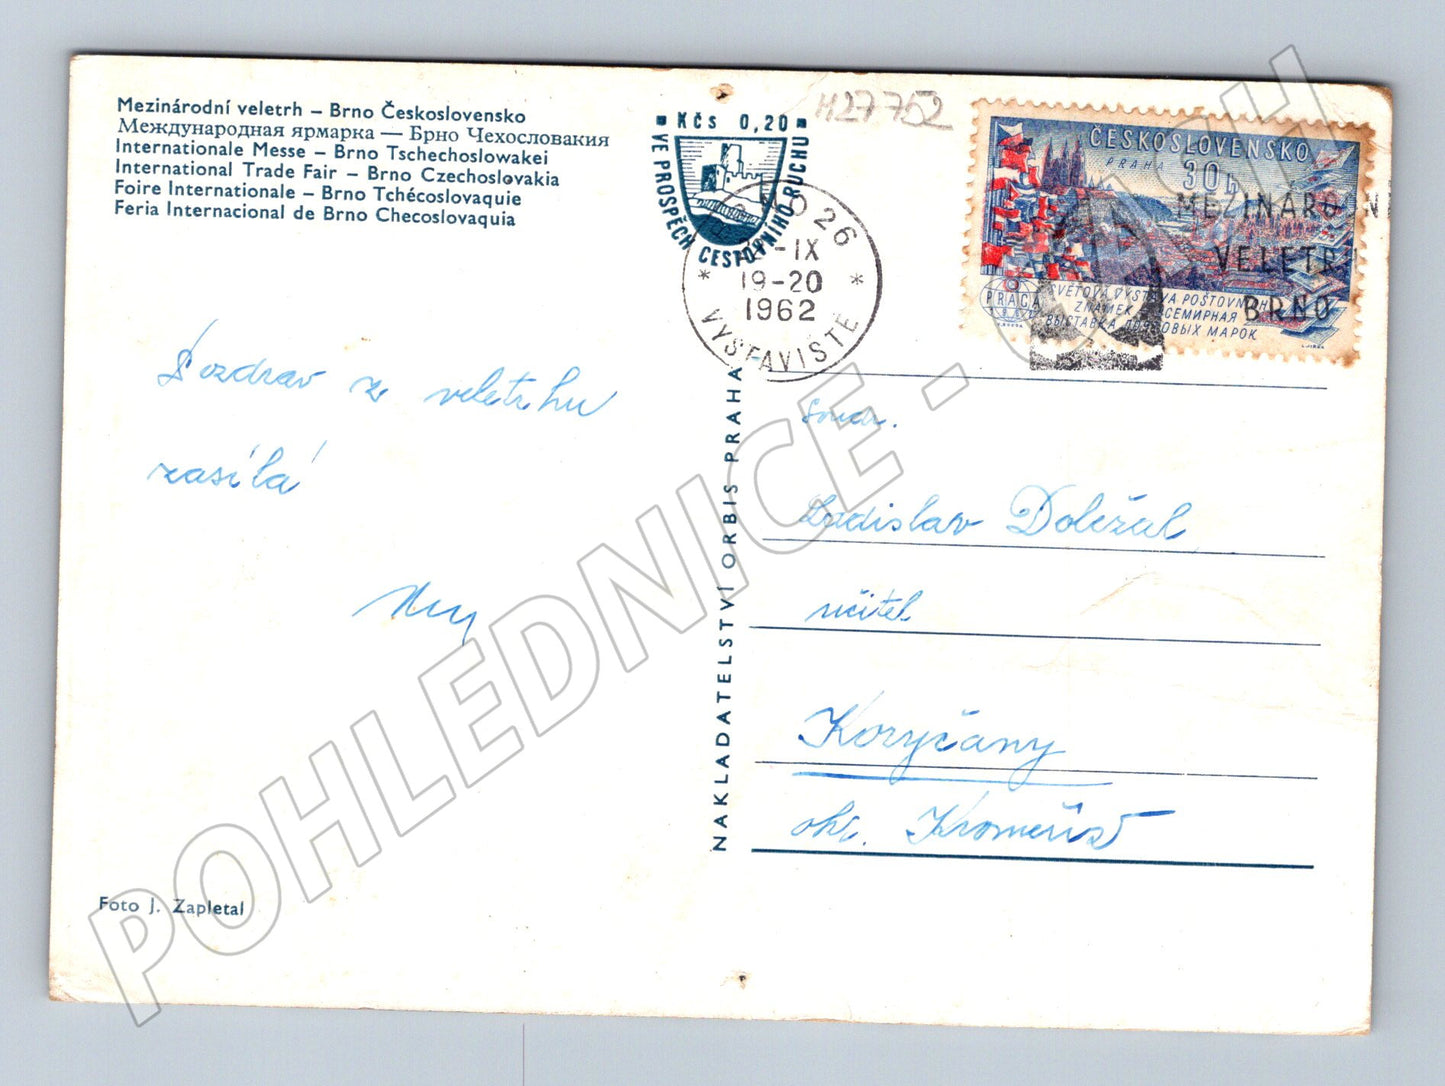 Mezinárodní veletrh – Brno Československo
Международная ярмарка — Брно Чехословакия
Internationale Messe – Brno Tschechoslowakei
International Trade Fair – Brno Czechoslovakia
Foire Internationale – Brno Tchécoslovaquie
Feria Internacional de Brno Checoslovaquia
KČS 0,20
VE PROSPĚCH CESTOVNÍHO RUCHU
H27752
26
-IX
19-20
1962
* VÝSTAVIŠTĚ *
ČESKOSLOVENSKO
PRAHA
30h
PRAGA
1962
SVĚTOVÁ VÝSTAVA POŠTOVNÍCH
ZNÁMEK ВСЕМИРНАЯ
ВЫСТАВКА ПОЧТОВЫХ МАРОК
MEZINÁRODN
VELETRH
BRNO
Pozdrav z veletrhu
zasílá
Soudr.
Ladislav Doležal
učitel
Koryčany
okr. Kroměříž
NAKLADATELSTVÍ ORBIS PRAHA
Foto J. Zapletal
POHLEDNICE - CASH